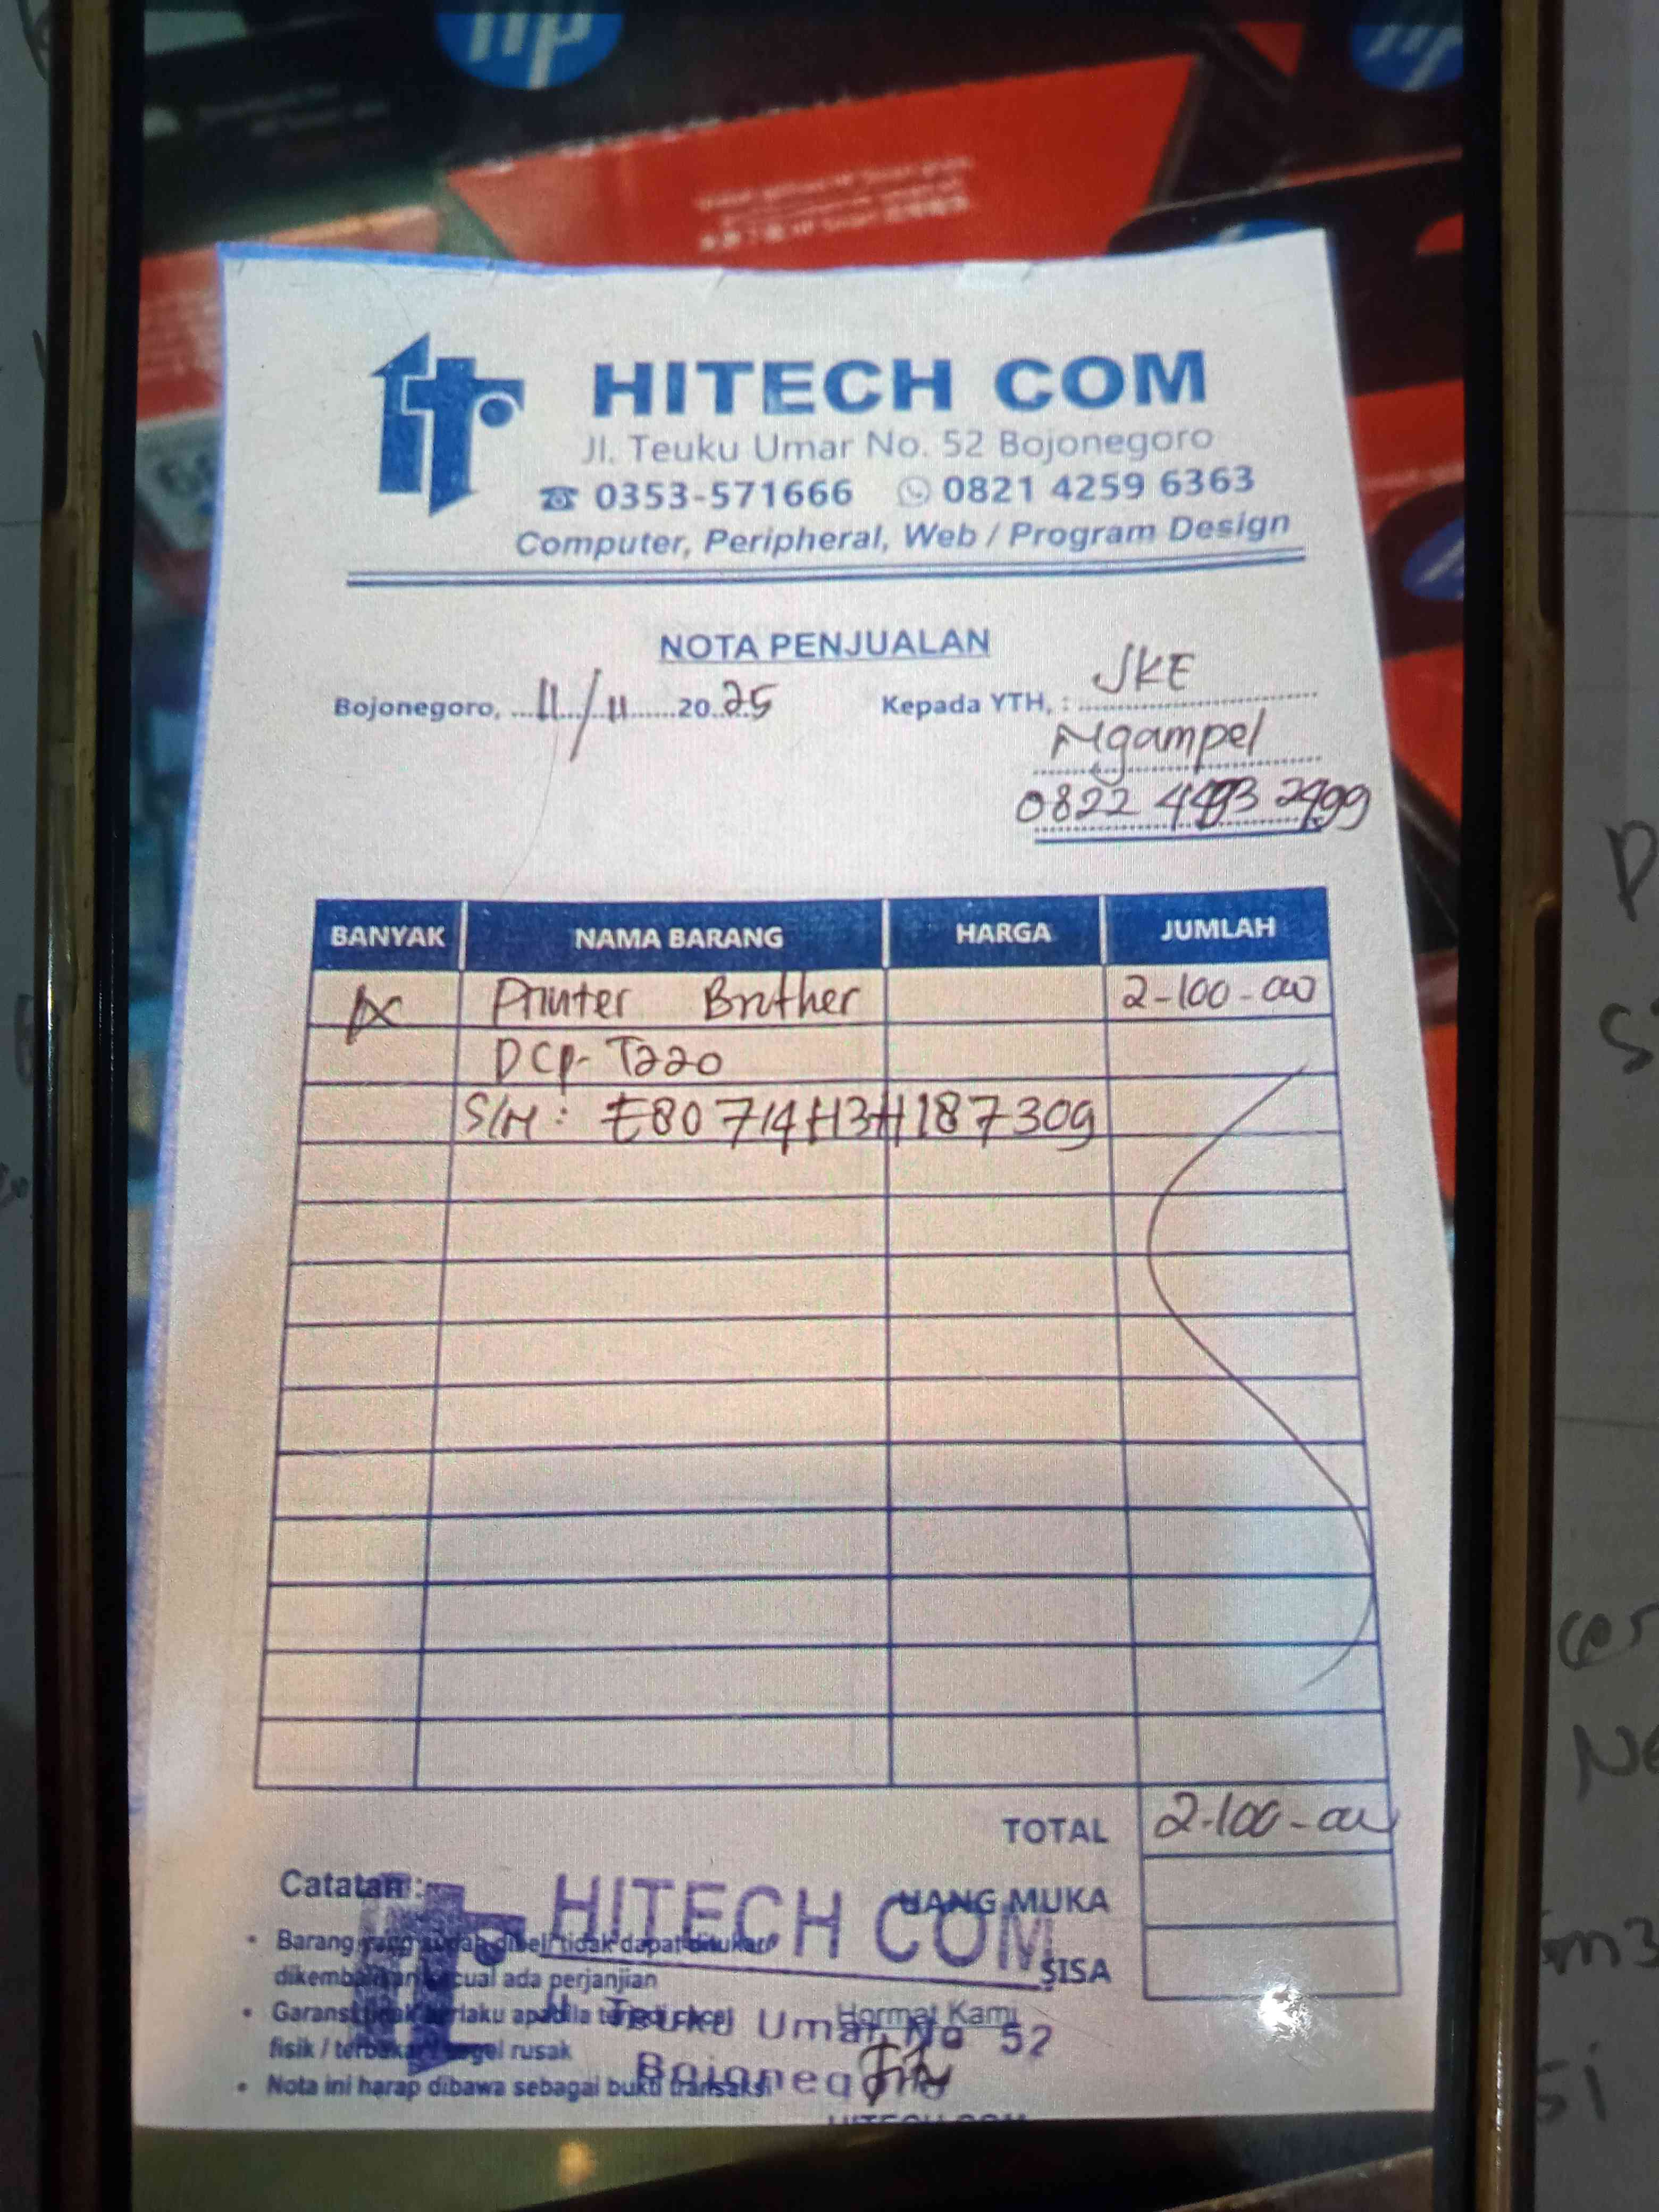 hp
HITECH COM
Jl. Teuku Umar No. 52 Bojonegoro
0353-571666 0821 4259 6363
Computer, Peripheral, Web / Program Design
NOTA PENJUALAN
Bojonegoro, 11/11 2025 Kepada YTH, : JKE
Ngampel
0822
BANYAK NAMA BARANG HARGA JUMLAH
1x Printer Brother 2-100-000
DCP-T220
S/N: E80714H3H187309
TOTAL 2-100-000
UANG MUKA
SISA
Catatan :
Barang yang sudah dibeli tidak dapat ditukar/
dikembalikan kecuali ada perjanjian
Garansi tidak berlaku apabila terjadi cacat
fisik / terbakar / segel rusak
Nota ini harap dibawa sebagai bukti transaksi
Hormat Kami,
HITECH COM
Jl. Teuku Umar No 52
Bojonegoro
HITECH COM